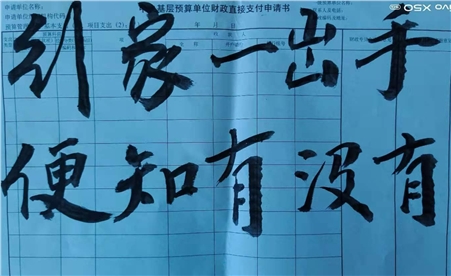 申请单位名称:
基层预算单位财政直接支付申请书
项目支出(2)
年 月 日
行家一出手
便知有没有
vivo X50